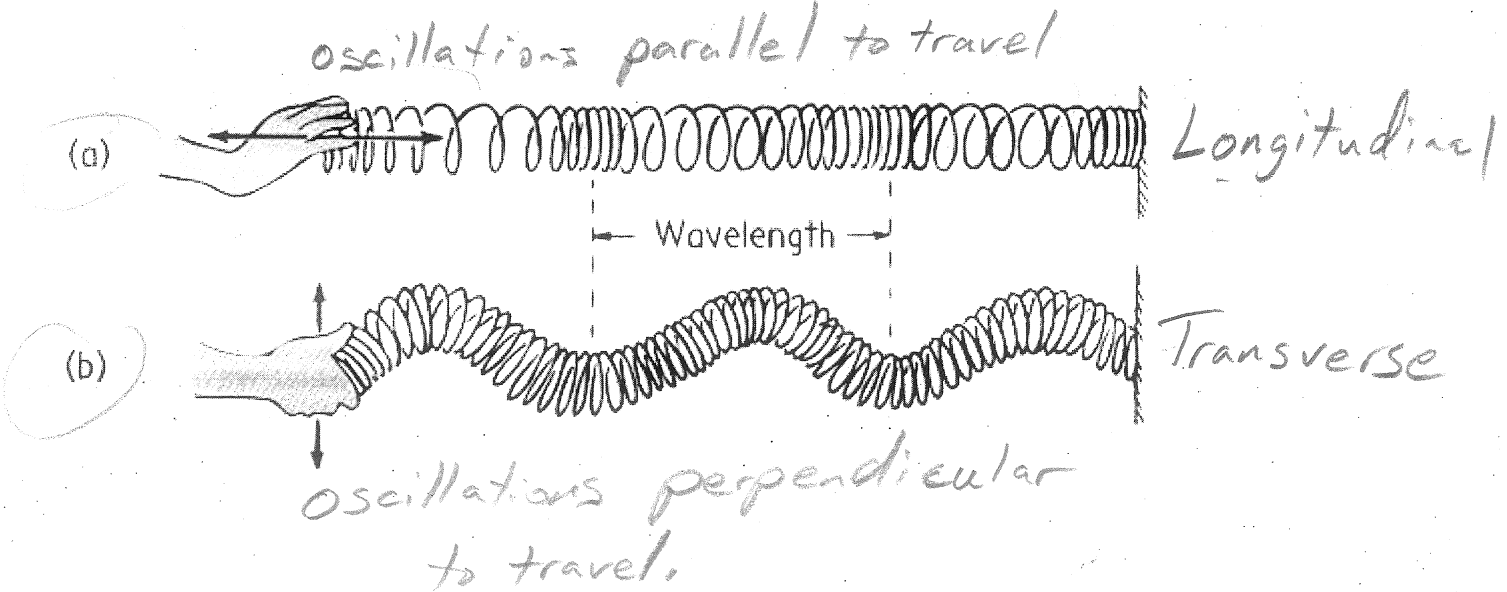 oscillations parallel to travel
(a)
Longitudinal
Wavelength
(b)
Transverse
oscillations perpendicular
to travel.